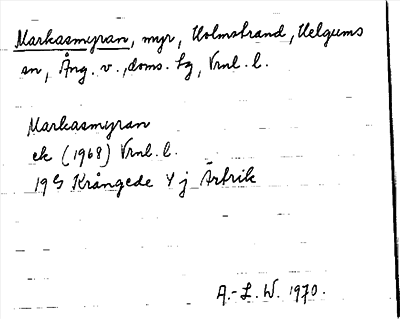 Markasmyran, myr, Holmstrand, Helgums
sn, Ång. v., doms. hg, Vrnl. l.
Markasmyran
ek (1968) Vrnl. l.
19 G Krångede Y j Ärtrik
A.-L. W. 1970.